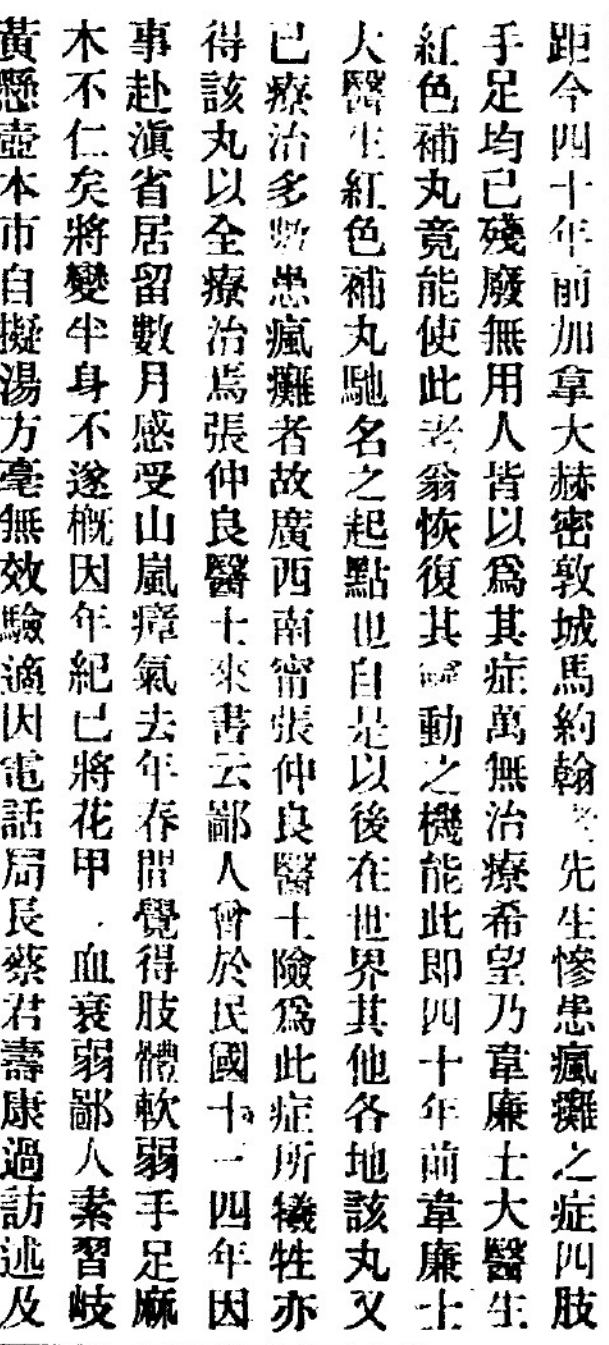 距今四十年前加拿大赫密敦城馬約翰老先生慘患瘋癱之症四肢
手足均已殘廢無用人皆以爲其症萬無治療希望乃韋廉士大醫生
紅色補丸竟能使此老翁恢復其動之機能此即四十年前韋廉士
大醫生紅色補丸馳名之起點也自是以後在世界其他各地該丸又
已療治多數患瘋癱者故廣西南甯張仲良醫士險爲此症所犧牲亦
得該丸以全療治焉張仲良醫士來書云鄙人曾於民國十三四年因
事赴滇省居留數月感受山嵐瘴氣去年春間覺得肢體軟弱手足麻
木不仁矣將變半身不遂概因年紀已將花甲血衰弱鄙人素習岐
黃懸壺本市自擬湯方毫無效驗適因電話局長蔡君壽康過訪述及